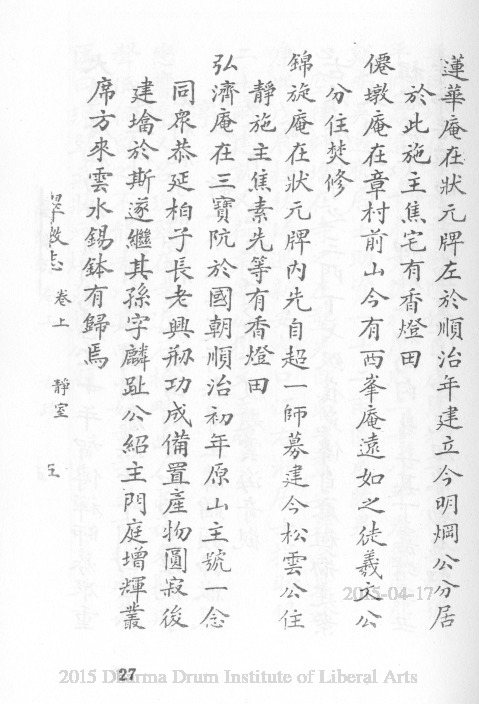 蓮華庵在狀元牌左於順治年建立今明炯公分居
於此施主焦宅有香燈田
僊墩庵在章村前山今有西峯庵遠如之徒義文公
分住焚修
錦旋庵在狀元牌內先自超一師募建今松雲公住
靜施主焦素先等有香燈田
弘濟庵在三寶阬於國朝順治初年原山主號一念
同眾恭延柏子長老興剏功成備置產物圓寂後
建墖於斯遂繼其孫字麟趾公紹主門庭增輝叢
席方來雲水錫鉢有歸焉
志 卷上 靜室 五
2015-04-17
27
2015 Dharma Drum Institute of Liberal Arts